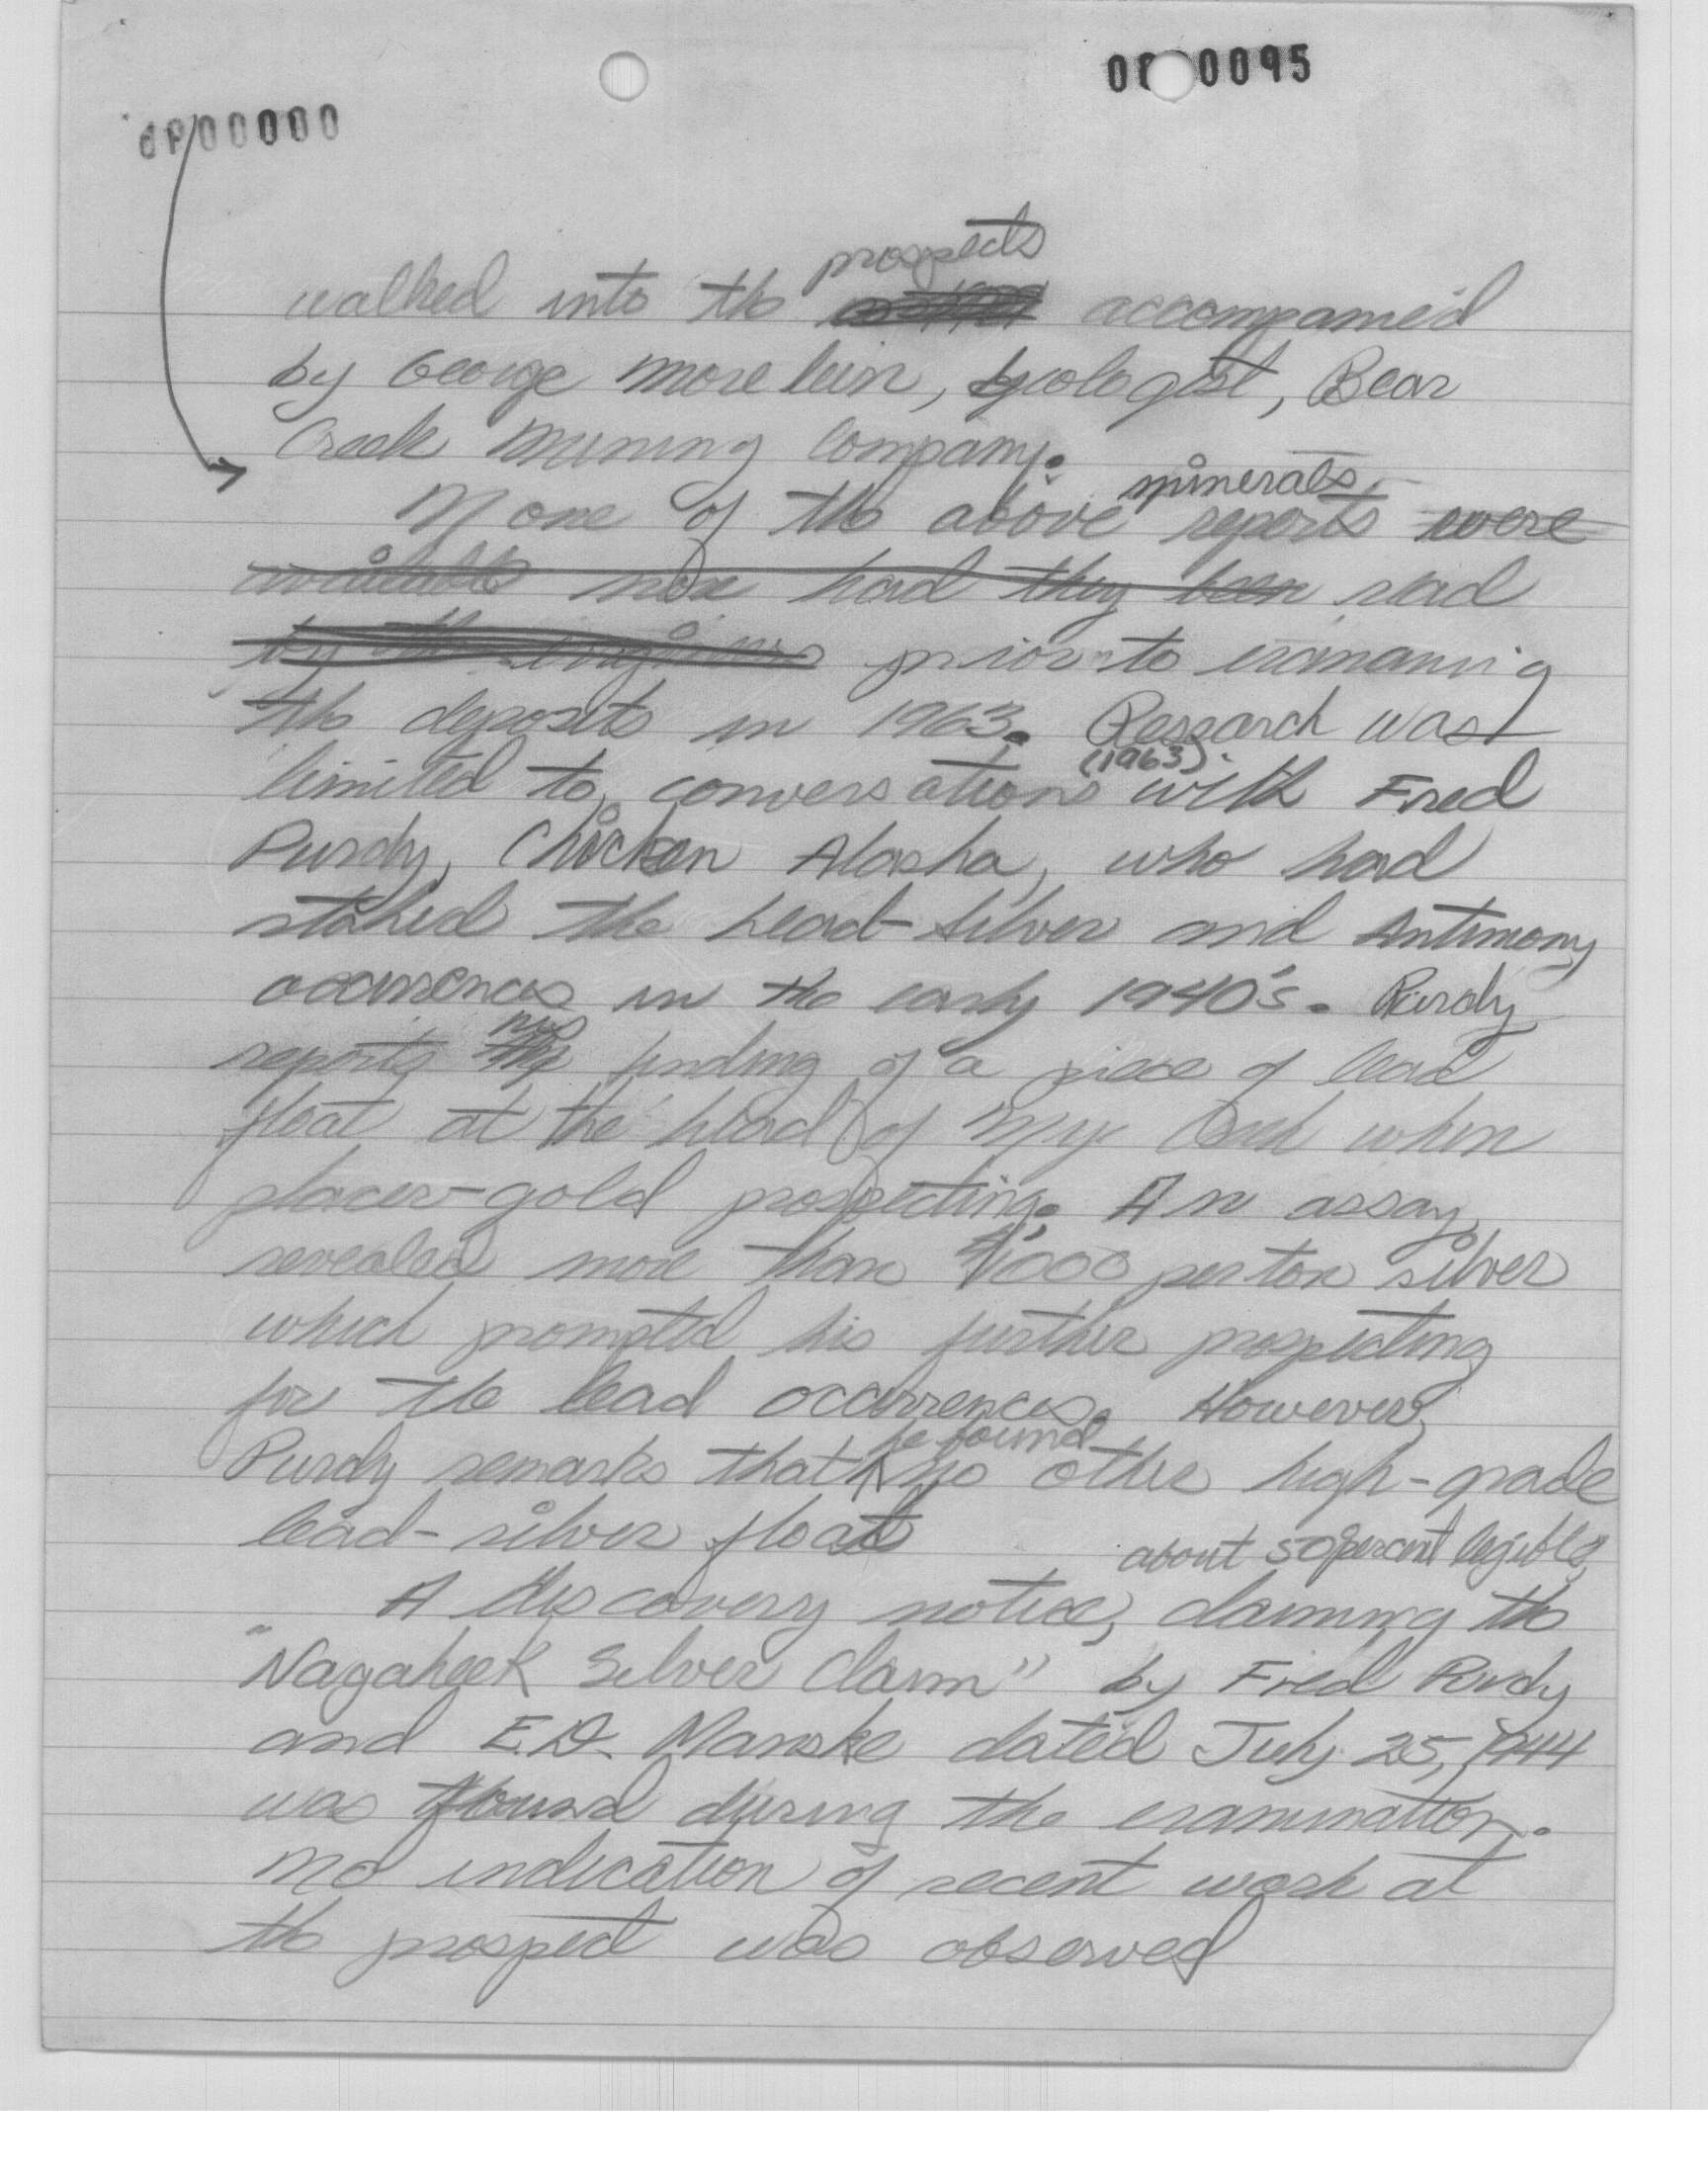 0000095
dP00000
prospects
walked into the accompanied
by George Moreluin, geologist, Bear
Creek Mining Company.
minerals
None of the above reports were
available nor had they been read
by the engineers prior to examining
the deposits in 1963. Research was
(1963)
limited to conversations with Fred
Purdy, Chicken Alaska, who had
staked the Lead-Silver and Antimony
occurrences in the early 1940's. Purdy
his
reports the finding of a piece of lead
float at the head of My Creek when
placer-gold prospecting. An assay
revealed more than $1000 per ton silver
which prompted his further prospecting
for the lead occurrences. However,
he found
Purdy remarks that no other high-grade
lead-silver float
about 50 percent legible,
A discovery notice, claiming the
"Nagaheek Silver Claim" by Fred Purdy
and E.D. Manske dated July 25, 1944
was found during the examination.
No indication of recent work at
the prospect was observed